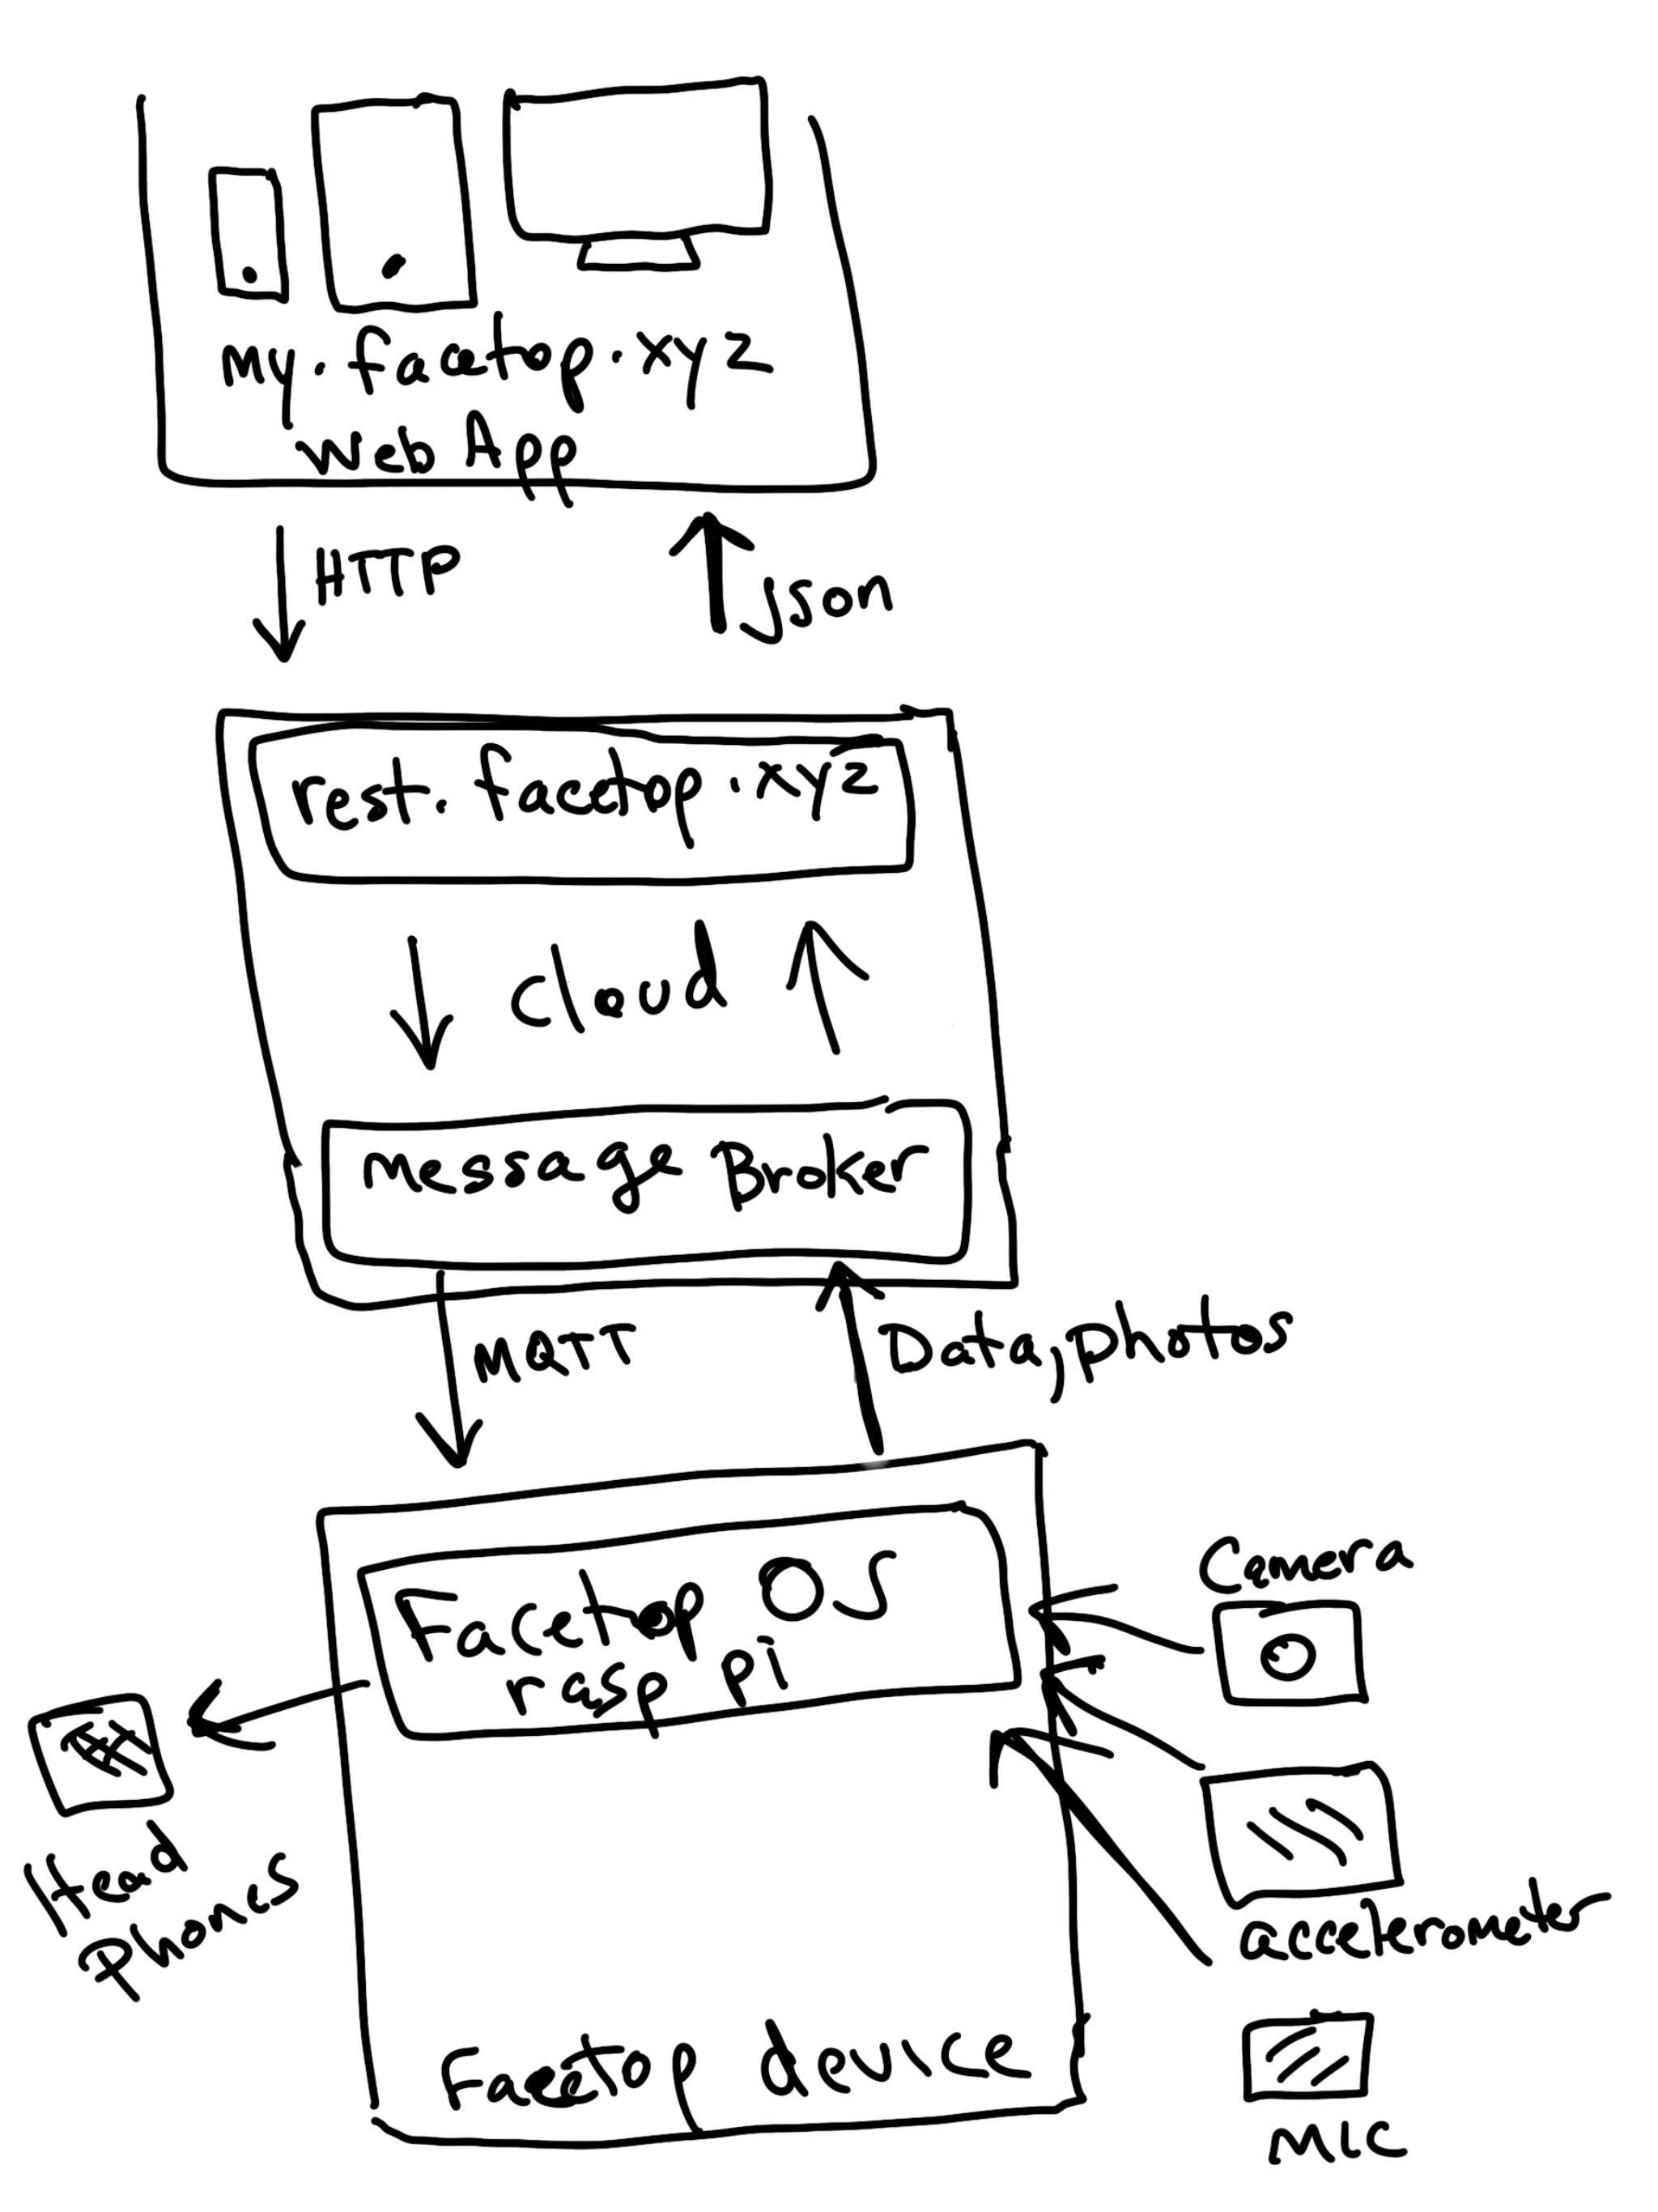 My.facetop.xyz
Web App
HTTP
Json
rest.facetop.xyz
Cloud
Message Broker
MQTT
Data, photos
Facetop OS
rasp pi
Camera
Head
Phones
accelerometer
Facetop device
MIC